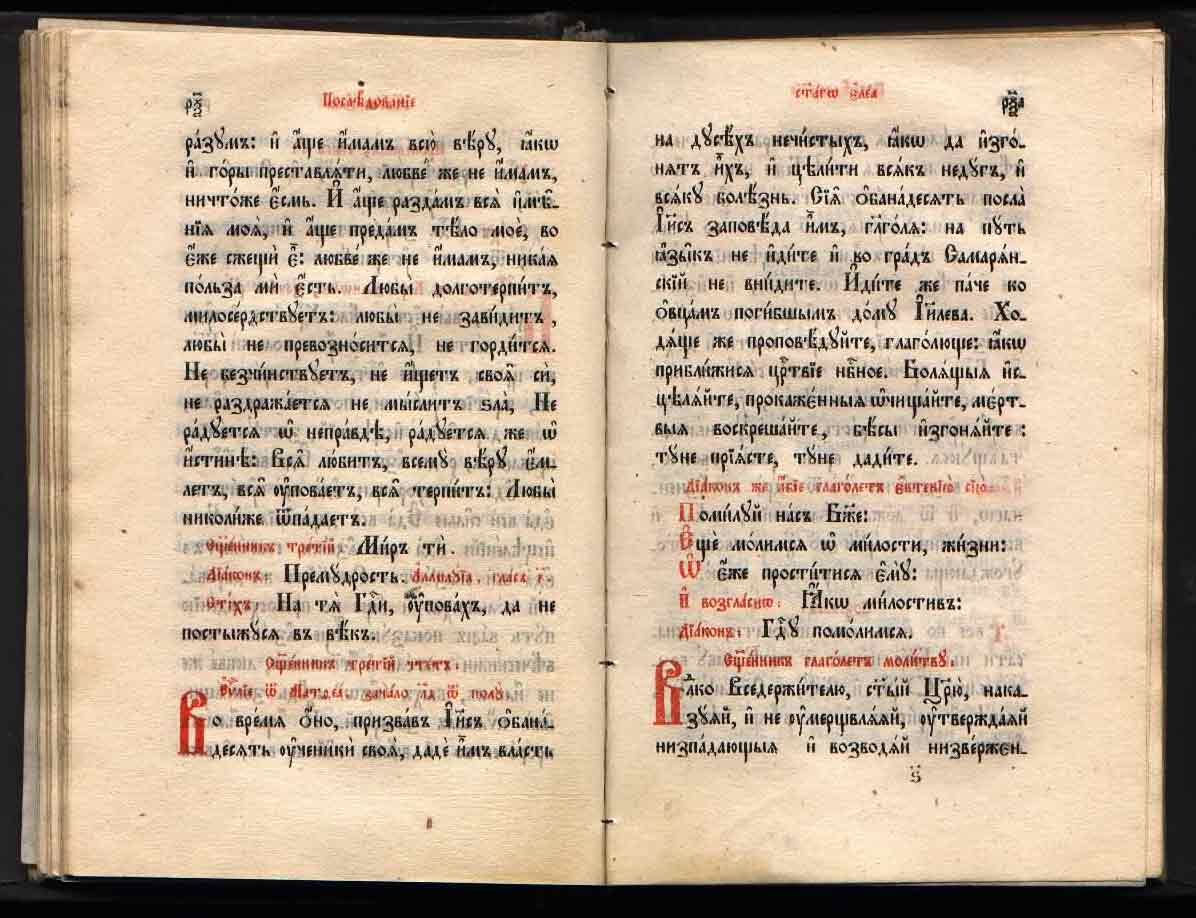 рѯ
Послѣдованїе
ра́зꙋмъ: и҆ а҆́ще и҆́мамъ всю̀ вѣ́рꙋ, ꙗ҆́кѡ
и҆ го́ры преставлѧ́ти, любве́ же не и҆́мамъ,
ничто́же є҆́смь. И҆ а҆́ще разда́мъ всѧ̑ и҆мѣ̑-
нїѧ моѧ̑, и҆ а҆́ще преда́мъ тѣ́ло моѐ, во
є҆́же сжещѝ є҆̀: любве́ же не и҆́мамъ, ника́ѧ
по́льза мѝ є҆́сть. Любы̀ долготерпи́тъ,
милосе́рдствꙋетъ: любы̀ не зави́дитъ,
любы̀ не превозно́сится, не горди́тсѧ.
Не безчи́нствꙋетъ, не и҆́щетъ своѧ̑ си,
не раздража́етсѧ не мы́слитъ ѕла̀, Не
ра́дꙋетсѧ ѡ҆ непра́вдѣ, ра́дꙋетсѧ же ѡ҆
и҆́стинѣ: Всѧ̑ лю́битъ, всемꙋ̀ вѣ́рꙋ є҆́м-
летъ, всѧ̑ ᲂу҆пова́етъ, всѧ̑ терпи́тъ: Любы̀
николи́же ѿпа́даетъ.
Сщ҃е́нникъ тре́тїй, Ми́ръ тѝ.
Дїа́конъ: Премꙋ́дрость. А҆ллилꙋ́їа, гла́съ
Сті́хъ, На тѧ̀ Гдⷭ҇и, ᲂу҆пова́хъ, да не
постыжꙋ́сѧ въ вѣ́къ.
Сщ҃е́нникъ тре́тїй чте́тъ:
Є҆ѵⷢ҇лїе, ѿ Матѳе́а, зача́ло лд҃ ѿ полꙋ̀.
Во вре́мѧ ѻ҆́но, призва́въ І҆и҃съ ѻ҆бана́-
десѧть ᲂу҆ченикѝ своѧ̑, дадѐ и҆̀мъ вла́сть
рѯа
ст҃а́гѡ є҆ле́а
на дꙋ́сѣхъ нечи́стыхъ, ꙗ҆́кѡ да и҆зго́-
нѧтъ и҆̀хъ, и҆ цѣли́ти всѧ́къ недꙋ́гъ, и҆
всѧ́кꙋ болѣ́знь. Сїѧ̑ ѻ҆бана́десѧть посла̀
І҆и҃съ заповѣ́да и҆̀мъ, гл҃го́лѧ: на пꙋ́ть
ꙗ҆зы̑къ не и҆ди́те и҆ во гра́дъ Самарѧ́н-
скїй не вни́дите. И҆ди́те же па́че ко
ѻ҆вца́мъ поги́бшымъ до́мꙋ І҆и҃лева. Хо-
дѧ́ще же проповѣ́дꙋйте, глаго́люще: ꙗ҆́кѡ
прибли́жисѧ црⷭ҇твїе нбⷭ҇ное. Болѧ́щыѧ и҆с-
цѣлѧ́йте, прокаже́нныѧ ѡ҆чища́йте, ме́рт-
выѧ воскреша́йте, бѣ́сы и҆згонѧ́йте:
тꙋ́не прїѧ́сте, тꙋ́не дади́те.
Дїа́конъ же а҆́бїе глаго́летъ є҆ктенїю̀ сїю̀.
Поми́лꙋй на́съ Бж҃е:
Є҆щѐ мо́лимсѧ ѡ҆ ми́лости, жи́зни:
Ѡ҆ є҆́же прости́тисѧ є҆мꙋ̀:
и҆ возгла́сиѡ: Ꙗ҆́кѡ ми́лостивъ:
Дїа́конъ: Гдⷭ҇ꙋ помо́лимсѧ.
Сщ҃е́нникъ глаго́летъ моли́твꙋ:
Влⷣко Вседержи́телю, ст҃ы́й Цр҃ю̀, нака-
зꙋ́ѧй, и҆ не ᲂу҆мерщвлѧ́ѧй, ᲂу҆твержда́ѧй
низпа́дающыѧ и҆ возводѧ́й низве́ржен-
ѕ